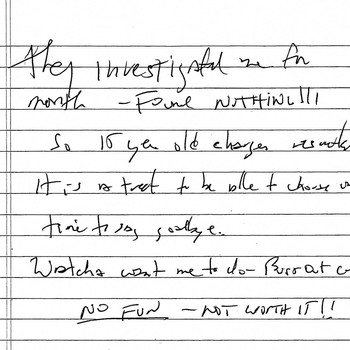 They investigated me for
month - Found NOTHING!!!
So 15 year old charges resulted
It is a treat to be able to choose
time to say goodbye.
Watcha want me to do - Burst out c
NO FUN - NOT WORTH IT!!